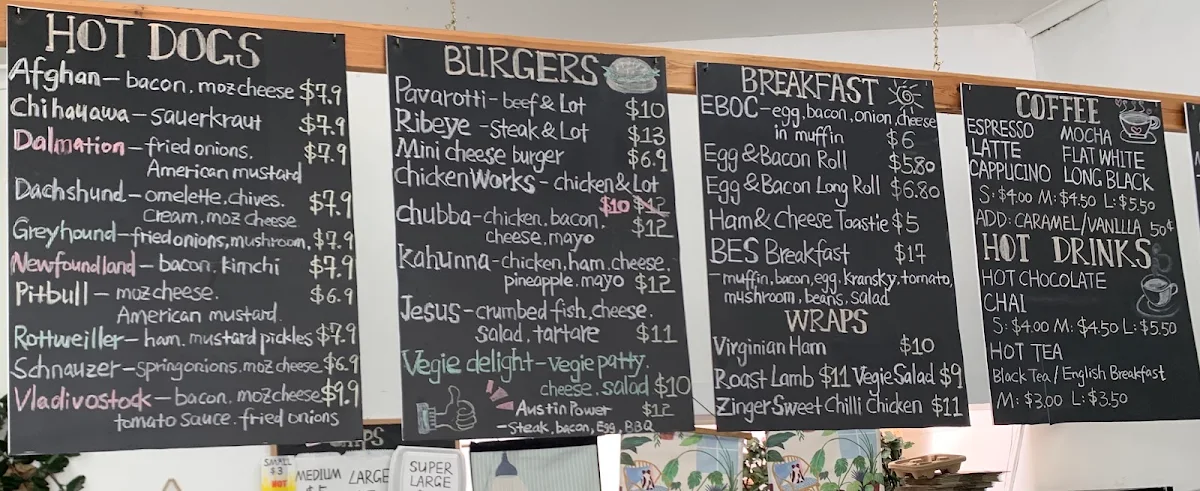 HOT DOGS
Afghan - bacon, moz cheese $7.9
Chihauawa - sauerkraut $7.9
Dalmation - fried onions, $7.9
American mustard
Dachshund - omelette, chives. $7.9
cream, moz cheese
Greyhound - fried onions, mushroom, $7.9
Newfoundland - bacon, kimchi $7.9
Pitbull - moz cheese. $6.9
American mustard.
Rottweiller - ham, mustard pickles $7.9
Schnauzer - spring onions, moz cheese $6.9
Vladivostock - bacon, moz cheese $9.9
tomato sauce. fried onions
BURGERS
Pavarotti - beef & Lot $10
Ribeye - steak & Lot $13
Mini cheese burger $6.9
chicken Works - chicken & Lot
$10 $12
chubba - chicken, bacon, $12
cheese, mayo
kahunna - chicken, ham, cheese,
pineapple, mayo $12
Jesus - crumbed fish, cheese.
salad, tartare $11
Vegie delight - vegie patty,
cheese, salad $10
Austin Power $12
- Steak, bacon, Egg, BBQ
BREAKFAST
EBOC - egg, bacon, onion, cheese
in muffin $6
Egg & Bacon Roll $5.80
Egg & Bacon Long Roll $6.80
Ham & Cheese Toastie $5
BES Breakfast $17
- muffin, bacon, egg, kransky, tomato,
mushroom, beans, salad
WRAPS
Virginian Ham $10
Roast Lamb $11 Vegie Salad $9
Zinger Sweet Chilli Chicken $11
COFFEE
ESPRESSO MOCHA
LATTE FLAT WHITE
CAPPUCINO LONG BLACK
S: $4.00 M: $4.50 L: $5.50
ADD: CARAMEL/VANILLA 50¢
HOT DRINKS
HOT CHOCOLATE
CHAI
S: $4.00 M: $4.50 L: $5.50
HOT TEA
Black Tea / English Breakfast
M: $3.00 L: $3.50
SMALL
$3
HOT
MEDIUM LARGE
SUPER
LARGE